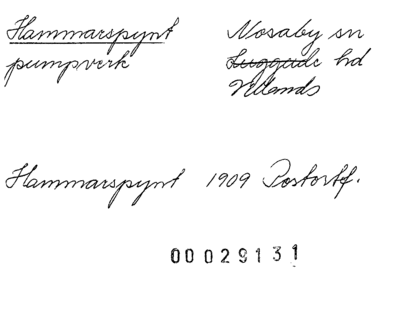 Hammarspynt Mosaby sn
pumpverk Luggude hd
Villands
Hammarspynt 1909 Postortf.
00029131